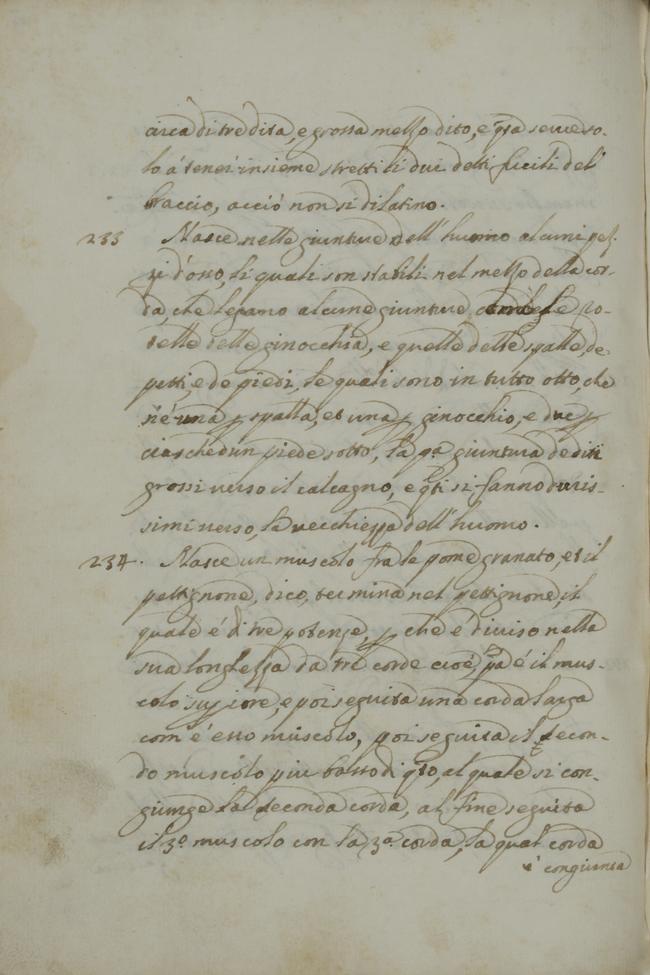 circa di tre dita, e grossa mezzo dito, e qsta serve so-
lo a' tener insieme stretti li dui detti fucili del
braccio, acciò non si dilatino.
233 Nasce nelle giunture dell'huomo alcuni pez-
zi d'osso, li quali son stabili nel mezzo della cor-
da, che legano alcune giunture, come le ro-
telle delle ginocchia, e quelle delle spalle, de
petti, e de piedi, le quali sono in tutto otto, che
n'é una p spalla, et una p ginocchio, e due p
ciaschedun piede sotto, la pa giuntura de diti
grossi verso il calcagno, e qsti si fanno duris-
simi verso, la vecchiezza dell'huomo.
234. Nasce un muscolo fra le pome granato, et il
pettignone, dico, termina nel pettignone, il
quale é di tre potenze, p che é diviso nella
sua longhezza da tre corde cioé, pa é il mus-
colo supiore, e poi seguita una corda larga
com'é esso muscolo, poi seguita il secon-
do muscolo piu basso di qsto, al quale si con-
giunge la seconda corda, al fine seguita
il 3o muscolo con la 3a corda, la qual corda
é congiunta